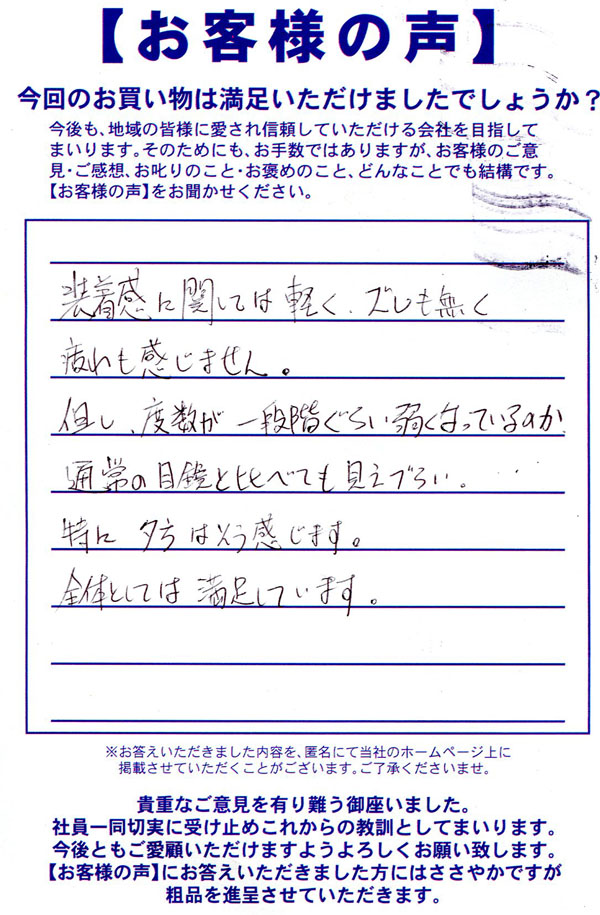 【お客様の声】
今回のお買い物は満足いただけましたでしょうか？
今後も、地域の皆様に愛され信頼していただける会社を目指して
まいります。そのためにも、お手数ではありますが、お客様のご意
見・ご感想、お叱りのこと・お褒めのこと、どんなことでも結構です。
【お客様の声】をお聞かせください。
装着感に関しては軽く、ズレも無く
疲れも感じません。
但し、度数が一段階ぐらい弱くなっているのか
通常の目鏡と比べても見えづらい。
特に夕方はそう感じます。
全体としては満足しています。
※お答えいただきました内容を、匿名にて当社のホームページ上に
掲載させていただくことがございます。ご了承くださいませ。
貴重なご意見を有り難う御座いました。
社員一同切実に受け止めこれからの教訓としてまいります。
今後ともご愛顧いただけますようよろしくお願い致します。
【お客様の声】にお答えいただきました方にはささやかですが
粗品を進呈させていただきます。